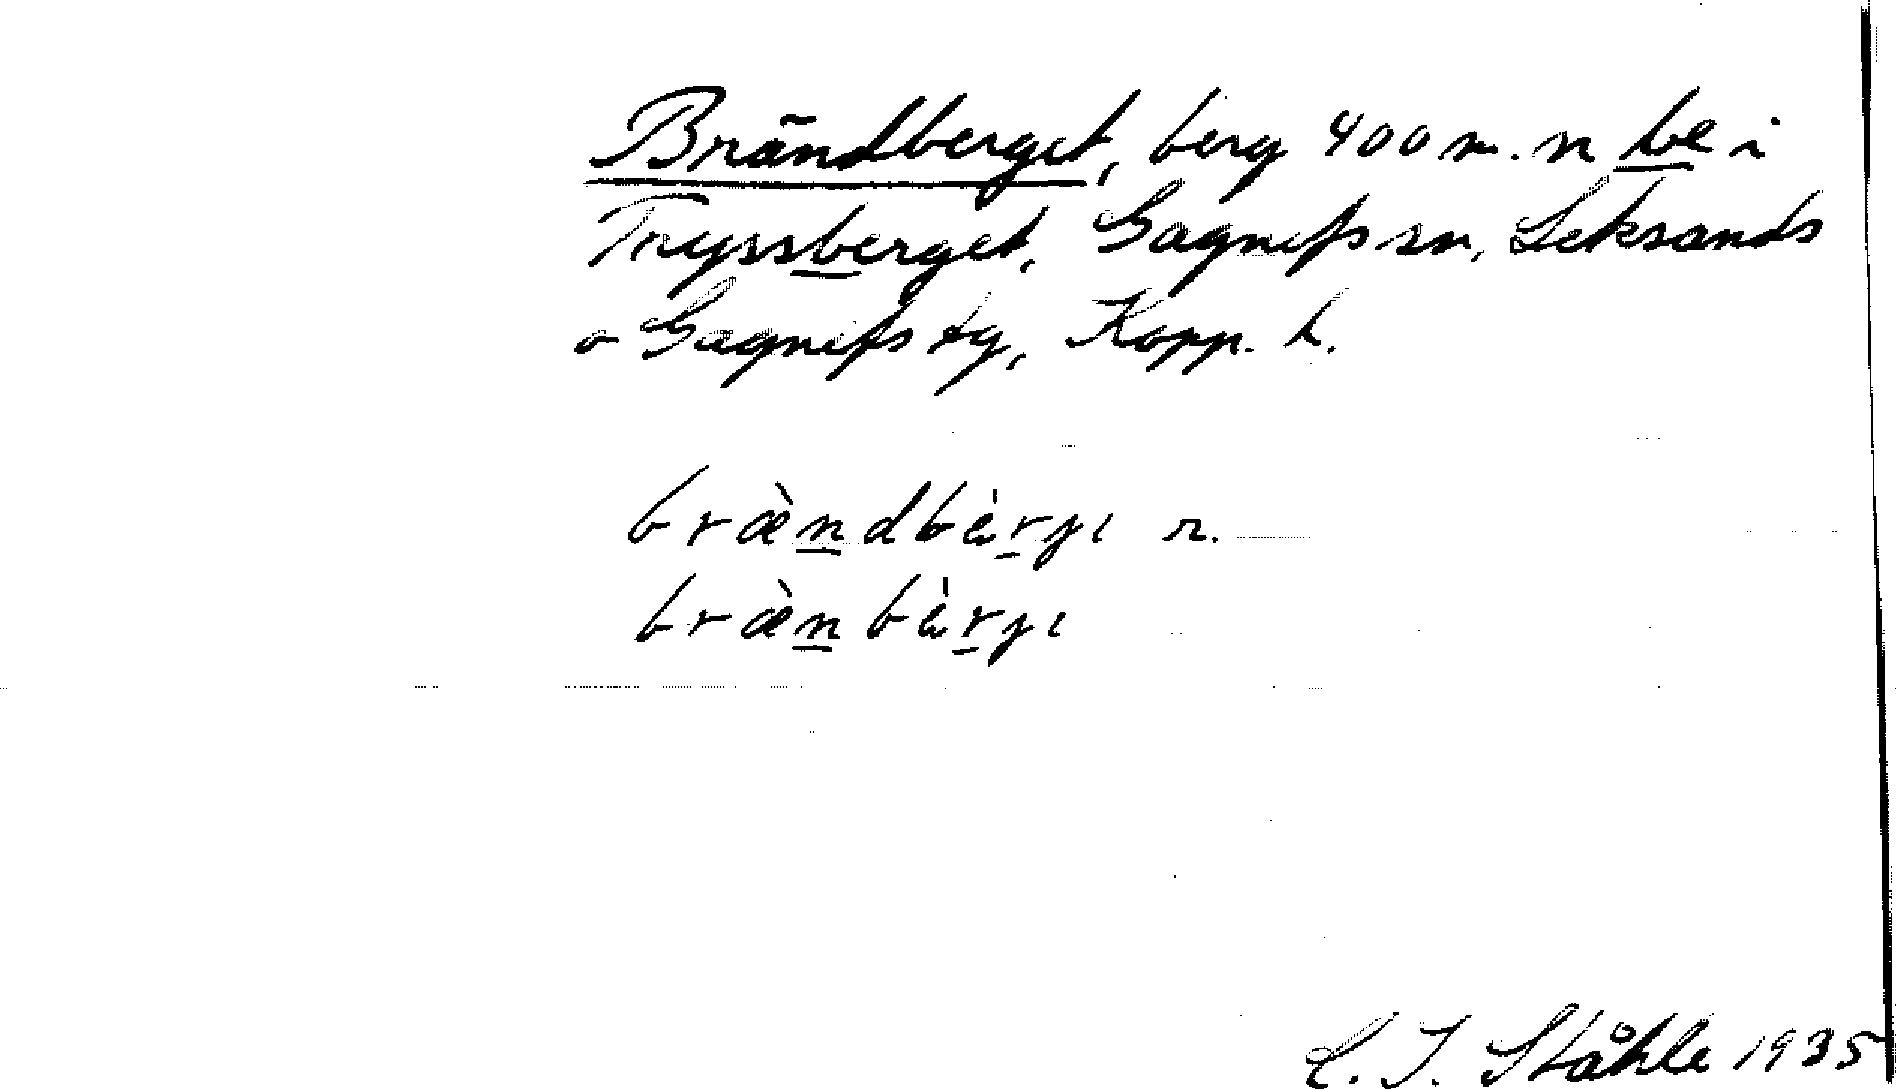 Brändberget, berg 400 m. n be i
Tryssberget, Gagnefs sn, Leksands
o Gagnefs tg, Kopp. l.
bræ̀ndbæ̀rgı n.
bræ̀nbæ̀rgı
C. I. Ståhle 1935